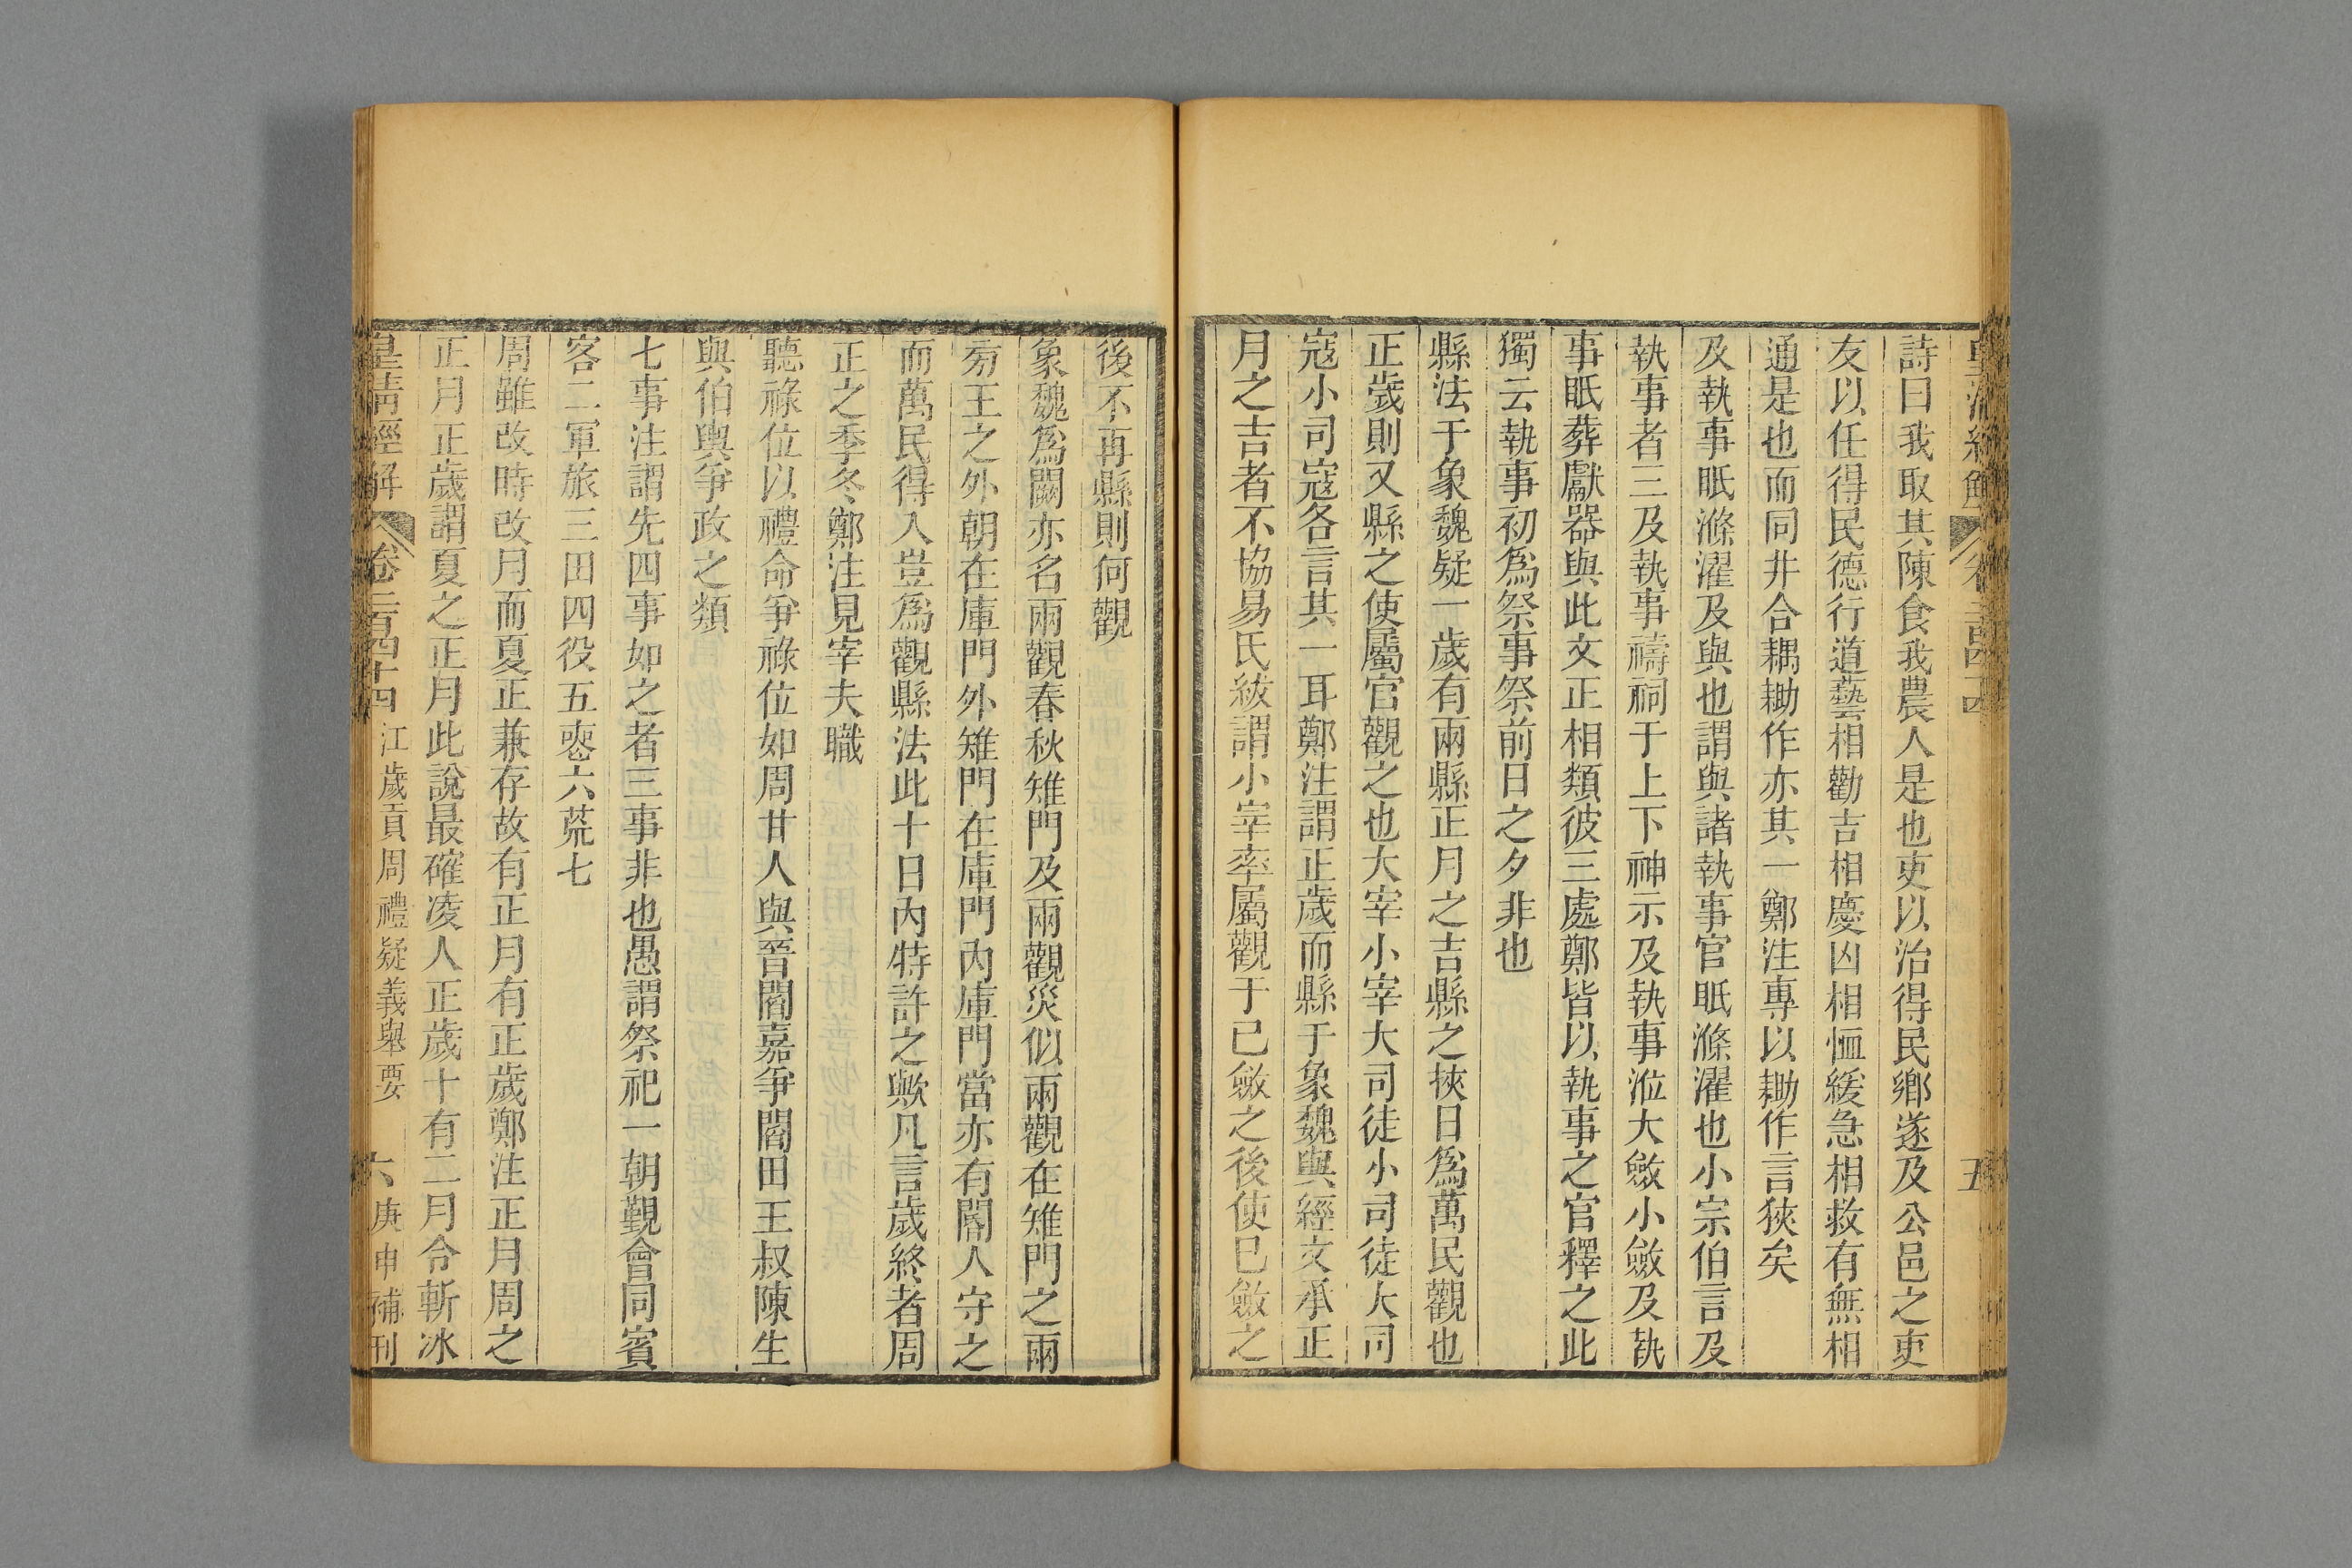 皇清經解 卷二百四十四 五
詩曰我取其陳食我農人是也吏以治得民鄉遂及公邑之吏
友以任得民德行道藝相勸吉相慶凶相恤緩急相救有無相
通是也而同井合耦耡作亦其一鄭注專以耡作言狹矣
及執事眂滌濯及與也謂與諸執事官眂滌濯也小宗伯言及
執事者三及執事禱祠于上下神示及執事涖大斂小斂及執
事眂葬獻器與此文正相類彼三處鄭皆以執事之官釋之此
獨云執事初為祭事祭前日之夕非也
縣法于象魏疑一歲有兩縣正月之吉縣之挾日為萬民觀也
正歲則又縣之使屬官觀之也大宰小宰大司徒小司徒大司
寇小司寇各言其一耳鄭注謂正歲而縣于象魏與經文承正
月之吉者不協易氏紱謂小宰率屬觀于已斂之後使已斂之
後不再縣則何觀
象魏為闕亦名兩觀春秋雉門及兩觀災似兩觀在雉門之兩
旁王之外朝在庫門外雉門在庫門內庫門當亦有閽人守之
而萬民得入豈為觀縣法此十日內特許之歟凡言歲終者周
正之季冬鄭注見宰夫職
聽祿位以禮命爭祿位如周甘人與晉閻嘉爭閻田王叔陳生
與伯輿爭政之類
七事注謂先四事如之者三事非也愚謂祭祀一朝覲會同賓
客二軍旅三田四役五喪六荒七
周雖改時改月而夏正兼存故有正月有正歲鄭注正月周之
正月正歲謂夏之正月此說最確凌人正歲十有二月令斬冰
皇清經解 卷二百四十四 江歲貢周禮疑義舉要 六 庚申補刊